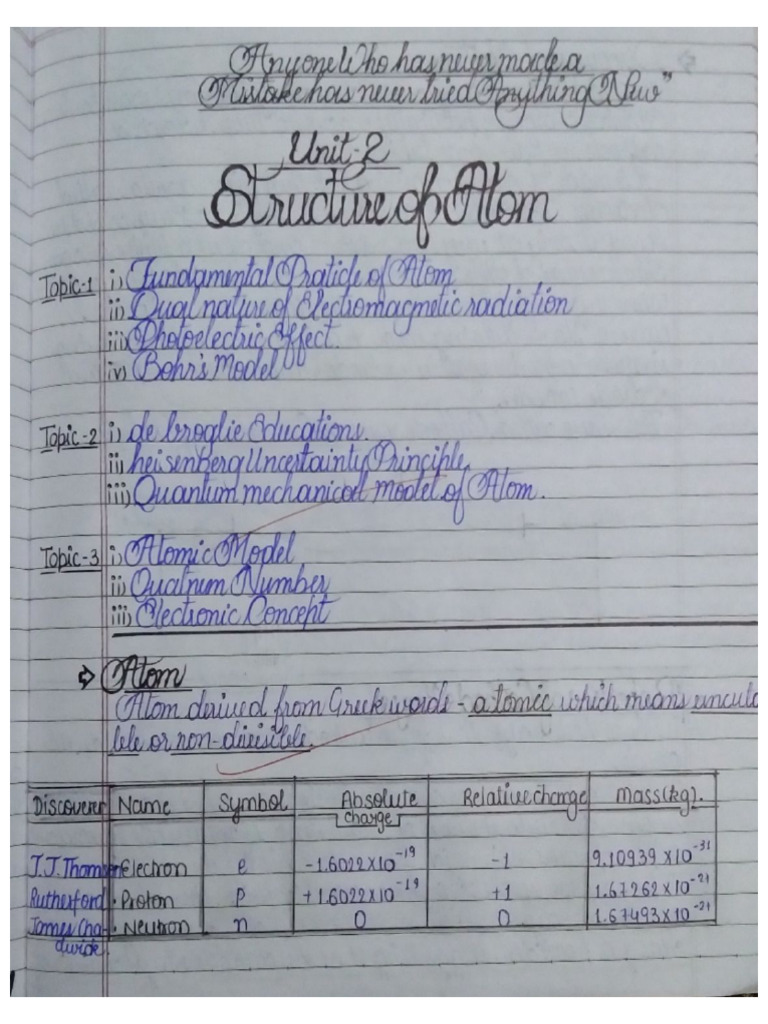 Anyone Who has never made a
Mistake has never tried Anything New"
Unit-2
Structure of Atom
Topic-1 i) Fundamental Praticle of Atom
ii) Dual nature of Electromagnetic radiation
iii) Photoelectric Effect.
iv) Bohr's Model
Topic-2 i) de broglie Educations.
ii) heisenberg Uncertainty Principle
iii) Quantum mechanical model of Atom.
Topic-3 i) Atomic Model
ii) Quatnum Number
iii) Electronic Concept
⇒ Atom
Atom derived from Greek words - a tomic which means uncuta
ble or non-divisible.
Discoverer Name Symbol Absolute charge Relative charge Mass(kg).
J.J. Thomson Electron e -1.6022×10⁻¹⁹ -1 9.10939×10⁻³¹
Rutherford. Proton P +1.6022×10⁻¹⁹ +1 1.67262×10⁻²⁷
James Cha- Neutron n 0 0 1.67493×10⁻²⁷
dwick.